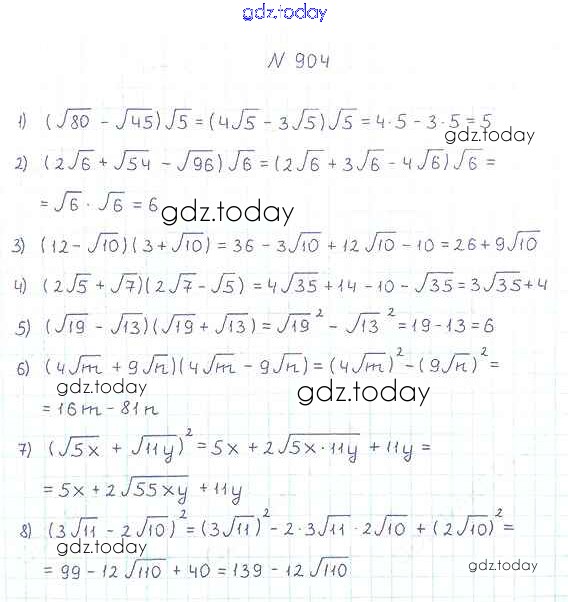 gdz.today
N 904
1) (√80 - √45)√5 = (4√5 - 3√5)√5 = 4·5 - 3·5 = 5
gdz.today
2) (2√6 + √54 - √96)√6 = (2√6 + 3√6 - 4√6)√6 =
= √6 · √6 = 6
gdz.today
3) (12 - √10)(3 + √10) = 36 - 3√10 + 12√10 - 10 = 26 + 9√10
4) (2√5 + √7)(2√7 - √5) = 4√35 + 14 - 10 - √35 = 3√35 + 4
5) (√19 - √13)(√19 + √13) = √19² - √13² = 19 - 13 = 6
6) (4√m + 9√n)(4√m - 9√n) = (4√m)² - (9√n)² =
gdz.today
gdz.today
= 16m - 81n
7) (√5x + √11y)² = 5x + 2√5x·11y + 11y =
= 5x + 2√55xy + 11y
8) (3√11 - 2√10)² = (3√11)² - 2·3√11·2√10 + (2√10)² =
gdz.today
= 99 - 12√110 + 40 = 139 - 12√110
gdz.today